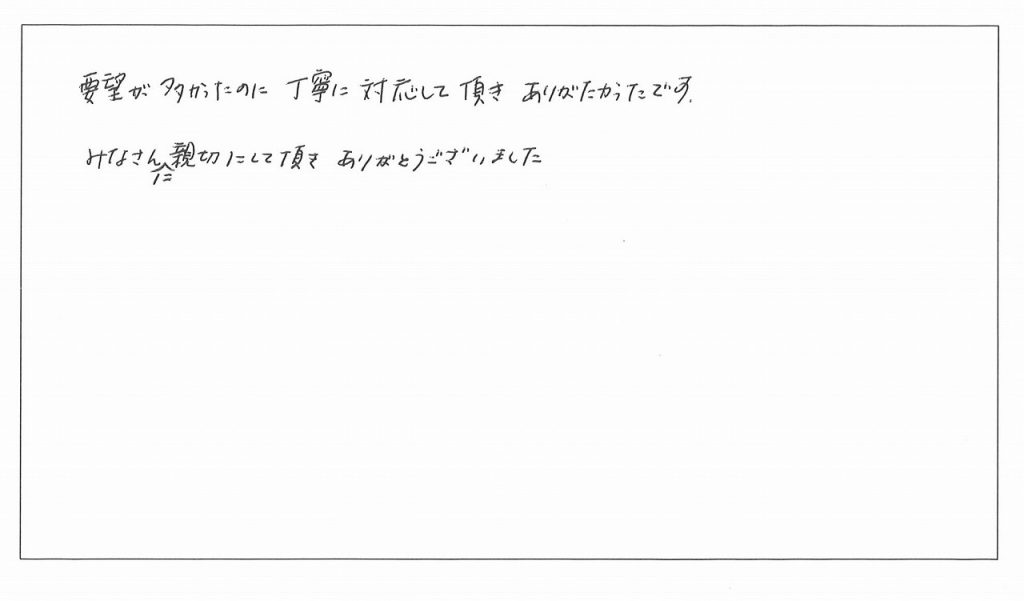 要望が多かったのに 丁寧に 対応して 頂き ありがたかったです.
みなさんに親切にして頂き ありがとうございました